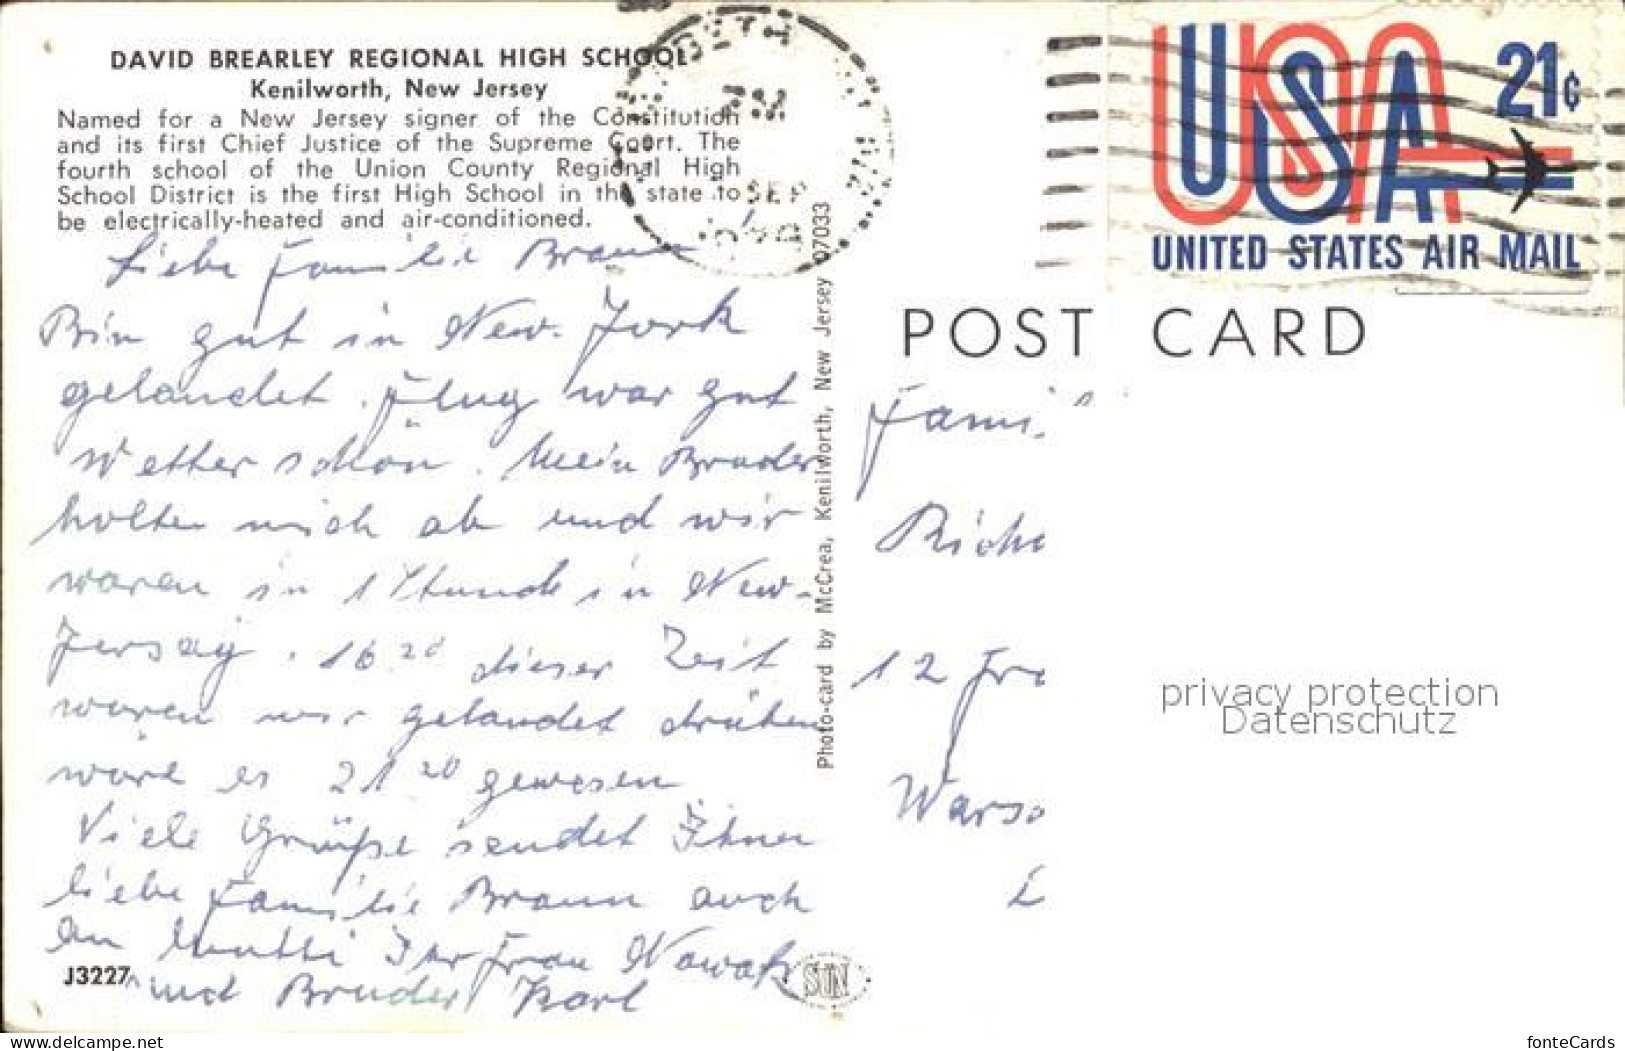 DAVID BREARLEY REGIONAL HIGH SCHOOL
Kenilworth, New Jersey
Named for a New Jersey signer of the Constitution
and its first Chief Justice of the Supreme Court. The
fourth school of the Union County Regional High
School District is the first High School in the state to
be electrically-heated and air-conditioned.
Liebe Familie Braun
Bin gut in New-York
gelandet. Flug war gut
Wetter schön. Mein Bruder
holte mich ab und wir
waren in 1 Stunde in New-
Jersay. 16 20 dieser Zeit
waren wir gelandet drüben
wäre es 21 20 gewesen
Viele Grüße sendet Ihnen
liebe Familie Braun auch
an Mutti Ihr Frau Nowak
und Bruder Karl
J3227
SUN
Photo-card by McCrea, Kenilworth, New Jersey 07033
SEP
USA 21c
UNITED STATES AIR MAIL
POST CARD
Famil
Riche
12 Fra
Warso
privacy protection
Datenschutz
www.delcampe.net
fonteCards